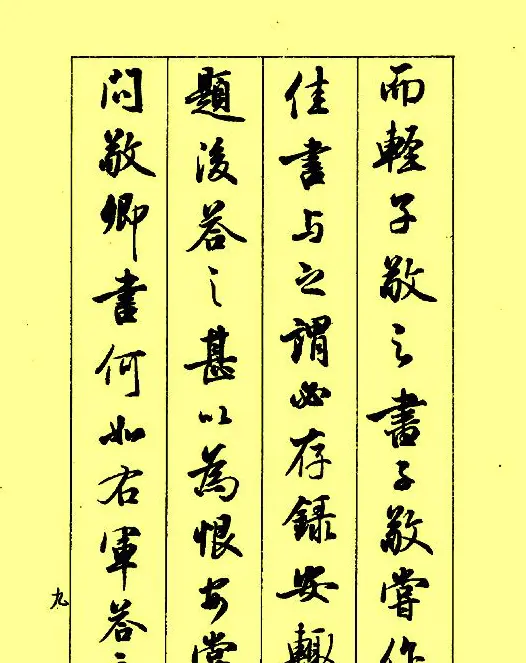 而輕子敬之書子敬嘗作
佳書与之謂必存録安輙
題後荅之甚以為恨安嘗
問敬卿書何如右軍荅之
九